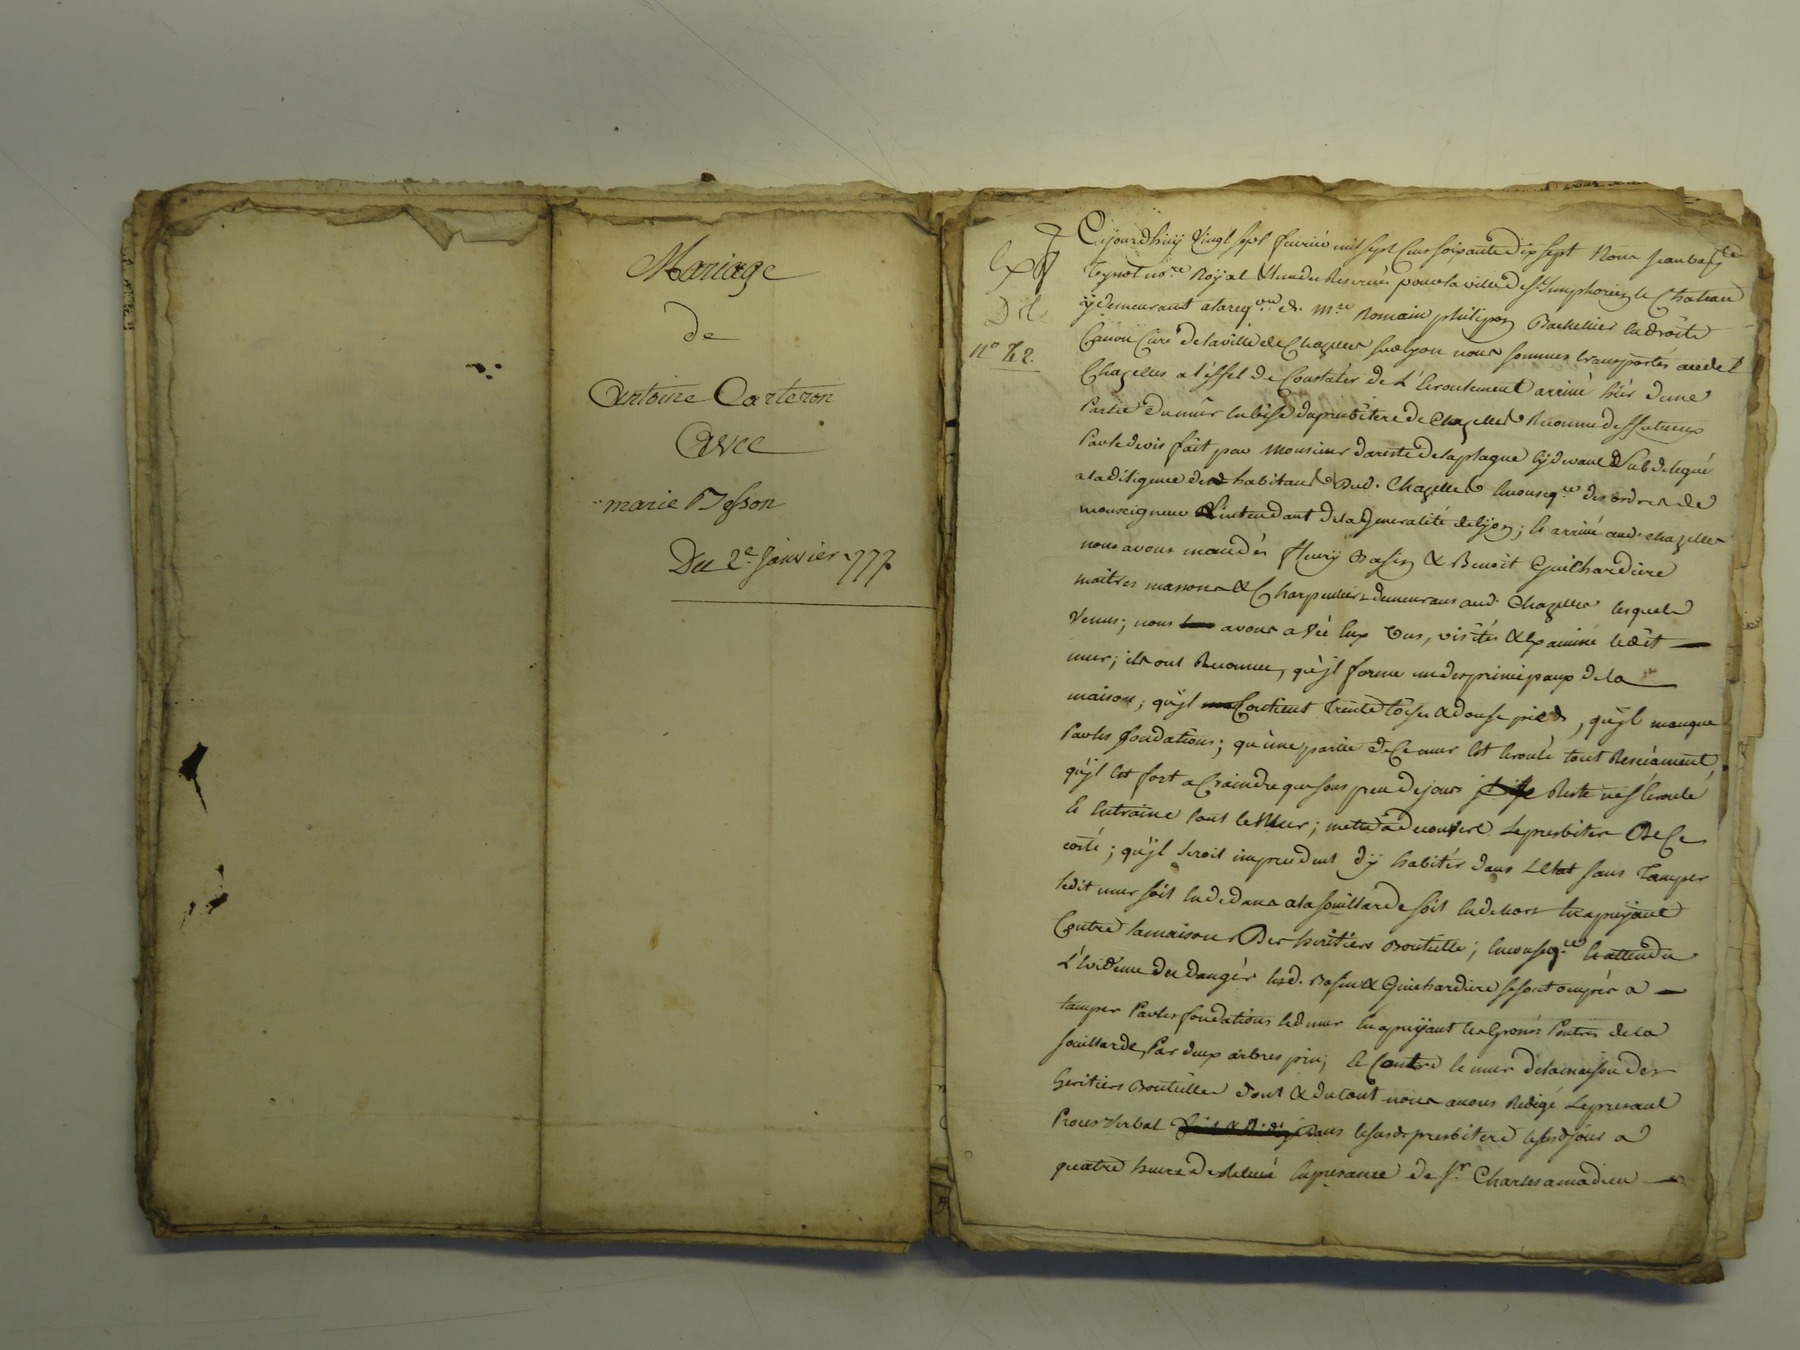 Mariage
de
Antoine Carteron
Avec
marie Besson
Du 2e. Janvier 1777.
Exp
Dil
n.o 72.
Cejourd'huy vingt sept fevrier mil sept Cens soixante dix sept Nous Jean ba.te
no.re Royal Reservé pour la ville de st. Simphorien le Chateau
y demeurant a la req.on de m.re Romain philipon Bachellier en droits
Canon Curé de la ville de Chazelles sur lyon nous sommes transportés aud.t
Chazelles a l'éffet de Constater de L'Ecroulement arrivé hier d'une
Partie du mur en bise du presbitere de Chazelles Reconnu deffectueux
Par le devis fait par monsieur dareste de la plagne cy devant Subdelegué
a la diligence des habitans dud. Chazelles en conseq.ce des ordres de
monseigneur L'intendant de la Generalité de lyon; Et arrivé aud. chazelles
nous avons mandés fleury Basin & Benoit Guilhardiere
maitres massons & Charpentiers demeurans aud. Chazelles lesquels
venus; nous avons avec Eux vus, visités & Examiné ledit
mur; ils ont Reconnu, qu'jl forme un des principaux de la
maison; qu'jl Contient trente toises & douse pieds, qu'jl manque
Par les fondations; qu'une partie de Ce mur Est Ecroulé tout Resciament,
qu'jl Est fort a Craindre que sous peu de jours Reste ne s'Ecroule
Et Entraine tout le Mur; mette a decouvert Le presbitere De Ce
coté; qu'jl seroit imprudent d'y habiter dans L'Etat sans Tamper
ledit mur soit En dedans a la souillarde soit En dehors En apuyant
Contre la maison Des heritiers Bouteille; En conseq.ce Et attendu
L'Evidence du danger lesd. Basin & Guichardiere se sont ocupés a
tamper Par les fondations led. mur En apuyant les Grosses Poutres de la
souillarde, Par deux arbres pin; Et Contre le mur de la maison des
heritiers Bouteille dont & du tout nous avons Redigé Le presant
Proces Verbal dans le susd. presbitere lesusd. jour a
quatre heures de Relevé En presance de Sr. Charles amadieu